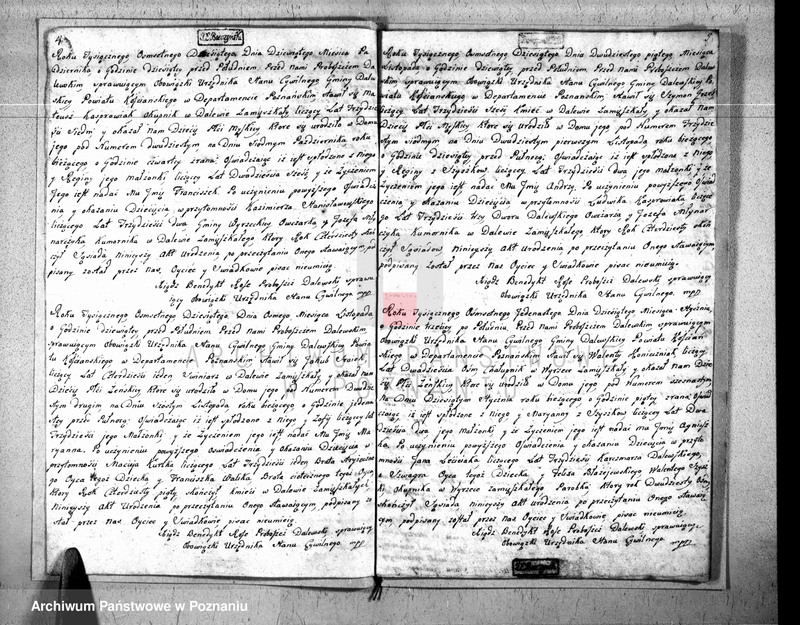 Roku Tysiącznego Osmsetnego Dziesiątego Dnia Dziewiątego Miesiąca Pa
Dziernika o Godzinie Dziewiątey przed Południem Przed Nami Proboszczem Da
lewskim sprawuiącym Obowiązki Urzędnika Stanu Cywilnego Gminy Dale
skiey Powiatu Kościanskiego w Departamencie Poznańskim stawił się Ma
teusz Kasprowiak Okupnik w Dalewie Zamięszkały liczący Lat Trzydzie
ści Siedm y okazał nam Dziecię Płci Męskiey ktore się urodziło w Domu
jego pod Numerem Dwudziestym na Dniu Siodmym Października roku
bieżącego o Godzinie czwartey zrana; Oświadczając iż iest spłodzone z Niego
y Reginy jego małżonki liczącey Lat Dwadzieścia Sześć y że Życzeniem
Jego iest nadać Mu Jmię Franciszek. Po uczynieniu powyższego Oświadcze
nia y okazaniu Dziecięcia w przytomności Kazimierza Stanisławskiego
liczącego Lat Trzydzieści dwa Gminy Owczarka y Jozefa Mły
narczyka Kumornika w Dalewie Zamięszkałego ktory Rok Czterdziesty
czył Sąsiada ninieyszy Akt Urodzenia po przeczytaniu Onego Stawaiącym pod
pisany został przez nas. Oyciec y Swiadkowie pisać nieumieią.
Xiądz Benedykt Rose Proboszcz Dalewski sprawu
iący Obowiązki Urzędnika Stanu Cywilnego mpp
Roku Tysiącznego Osmsetnego Dziesiątego Dnia Osmego Miesiąca Listopada
o Godzinie Dziewiątey przed Południem Przed Nami Proboszczem Dalewskim
sprawuiącym Obowiązki Urzędnika Stanu Cywilnego Gminy Dalewskiey Powia
tu Kościanskiego w Departamencie Poznańskim stawił się Jakub
liczący Lat Czterdzieści ieden w Dalewie Zamięszkały y okazał nam
Dziecię Płci Żenskiey ktore się urodziło w Domu jego pod Numerem Dwudzie
stym drugim na Dniu Szostym Listopada roku bieżącego o Godzinie jedena
stey przed Połnocą; Oświadczając iż iest spłodzone z Niego y Zofii liczącey lat
Trzydzieści jego Małżonki y że Życzeniem jego iest nadać Mu Jmię Ma
ryanna. Po uczynieniu powyższego Oświadczenia y okazaniu Dziecięcia w
przytomności Macieja Kurka liczącego Lat Trzydzieści ieden Brata
go Oyca tegoż Dziecka y Franciszka Walka Brata ciotecznego tegoż Oyca
ktory Rok Czterdziesty piąty skończył Kmieci w Dalewie Zamięszkałych
Ninieyszy Akt Urodzenia po przeczytaniu Onego Stawaiącym, podpisany zo
stał przez nas Oyciec y Swiadkowie pisać nieumieią
Xiądz Benedykt Rose Proboszcz Dalewski sprawuiący
Obowiązki Urzędnika Stanu Cywilnego mpp
Roku Tysiącznego Osmsetnego Dziesiątego Dnia Dwudziestego piątego Miesiąca
Listopada o Godzinie Dziewiątey przed Południem Przed Nami Proboszczem Dalew
skim sprawuiącym Obowiązki Urzędnika Stanu Cywilnego Gminy Dalewskiey Po
wiatu Kościanskiego w Departamencie Poznańskim, stawił się Szymon
liczący Lat Trzydzieści Sześć Kmieć w Dalewie Zamięszkały y okazał nam
Dziecię Płci Męskiey ktore się urodziło w Domu jego pod Numerem Trzydzie
stym siodmym na Dniu Dwudziestym pierwszym Listopada roku bieżącego
o Godzinie Dziewiątey przed Połnocą; Oświadczając iż iest spłodzone z Niego
y Reginy z Szyszkow liczącey Lat Trzydzieści dwa jego małżonki y że
Życzeniem jego iest nadać Mu Jmię Andrzey. Po uczynieniu powyższego Oświad
czenia y okazaniu Dziecięcia w przytomności Ludwika Kasprowiaka liczące
go Lat Trzydzieści trzy Dwora Dalewskiego Owczarza y Jozefa Młynar
czyka Kumornika w Dalewie Zamięszkałego ktory Rok Czterdziesty skoń
czył Sąsiadow Ninieyszy Akt Urodzenia po przeczytaniu Onego Stawaiącym
podpisany został przez nas Oyciec y Swiadkowie pisać nieumieią.
Xiądz Benedykt Rose Proboszcz Dalewski sprawuiący
Obowiązki Urzędnika Stanu Cywilnego mpp
Roku Tysiącznego Osmsetnego Jedenastego Dnia Dziesiątego Miesiąca Stycznia,
o Godzinie trzeciey po Południu. Przed Nami Proboszczem Dalewskim sprawuiącym
Obowiązki Urzędnika Stanu Cywilnego Gminy Dalewskiey Powiatu Kościan
skiego w Departamencie Poznańskim Stawił się Walenty Konieczniak liczący
Lat Dwadzieścia Osm Chałupnik w Wyrzece Zamięszkały y okazał nam Dzie
cię Płci Żenskiey ktore się urodziło w Domu jego pod Numerem szesnastym
na Dniu Dziewiątym Stycznia roku bieżącego o godzinie piątey zrana; Oświad
czając iż iest spłodzone z Niego y Maryanny z Szyszkow liczącey Lat Dwa
dzieścia dwa jego małżonki y że Życzeniem jego iest nadać mu Jmię Agniesz
ka. Po uczynieniu powyższego Oświadczenia y okazaniu Dziecięcia w przyto
mności Jana liczącego Lat Trzydzieści Karczmarza Dalewskiego,
a Szwagra Oyca tegoż Dziecka y Felixa Błażejewskiego Walentego
Okupnika w Wyrzece zamięszkałego Parobka ktory rok Dwudziesty
skończył Sąsiada ninieyszy Akt Urodzenia po przeczytaniu Onego Stawaią
cym podpisany został przez nas Oyciec y Swiadkowie pisać nieumieią.
Xiądz Benedykt Rose Proboszcz Dalewski sprawuiący
Obowiązki Urzędnika Stanu Cywilnego mpp
Archiwum Państwowe w Poznaniu